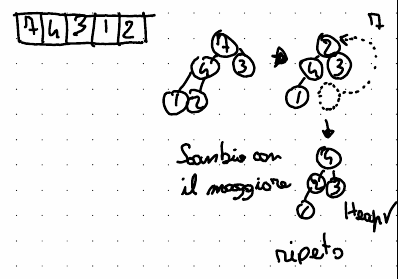 7 4 3 1 2
7
4 3
1 2
7
2
4 3
1
Scambio con
il maggiore
4
2 3
1
Heap √
ripeto